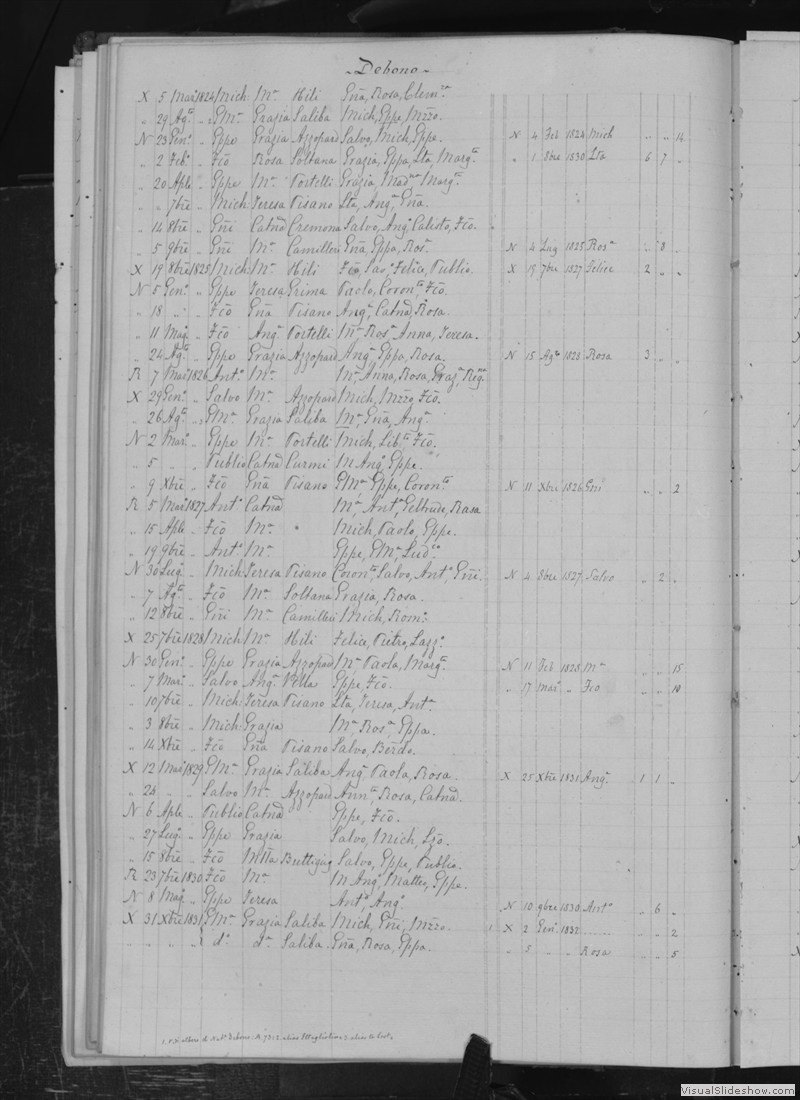 Debono
X 5 Mar 1824 Mich Mª Hili Eña, Rosa, Clemza
„ 29 Agto „ GMª Grazia Saliba Mich, Gppe, Mzzo.
N 23 Geno „ Gppe Grazia Azzopard Salvo, Mich, Gppe. N 4 Feb 1824 Mich „ „ 14
„ 2 Febo „ Fco Rosa Soltana Grazia, Gppa, Lta, Margta „ 1 8bre 1830 Lta 6 7 „
„ 20 Aple „ Gppe Mª Portelli Grazia, Margta
„ 7bre „ Mich Teresa Pisano Lta, Anga, Eña.
„ 14 8bre „ Eñi Catna Cremona Salvo, Ango, Calisto, Fco.
„ 5 9bre „ Eñi Mª Camilleri Eña, Gppa, Rosa N 4 Lug 1825 Rosa „ 8 „
X 19 8bre 1825 Mich Mª Hili Fco, Felice, Publio. X 19 7bre 1827 Felice 2 „ „
N 5 Geno „ Gppe Teresa Grima Paolo, Coronto, Fco.
„ 18 „ „ Fco Eña Pisano Anga, Catna, Rosa.
„ 11 Mago „ Fco Anga Portelli Mª Rosa, Anna, Teresa.
„ 24 Agto „ Gppe Grazia Azzopard Anga, Gppa, Rosa. N 15 Agto 1828 Rosa 3 „ „
R 7 Mar 1826 Anto Mª Mª, Anna, Rosa, Graza, Rega
X 29 Geno „ Salvo Mª Azzopard Mich, Mzzo, Fco.
„ 26 Agto „ GMª Grazia Saliba Mª, Eña, Anga.
N 2 Maro „ Gppe Mª Portelli Mich, Libto, Fco.
„ 5 „ „ Publio Catna Curmi M Ango, Gppe.
„ 9 Xbre „ Fco Eña Pisano GMª, Gppe, Coronto N 11 Xbre 1826 Gni „ „ 2
R 5 Mar 1827 Anto Catna Mª, Anta, Geltrude, Rosa
„ 15 Aple „ Fco Mª „ Mich, Paolo, Gppe.
„ 19 9bre „ Anto Mª Gppe, GMª, Ludco
N 30 Lugo „ Mich Teresa Pisano Coronto, Salvo, Anto, Eñi. N 4 8bre 1827 Salvo „ 2 „
„ 7 Agto „ Fco Mª Soltana Grazia, Rosa.
„ 12 8bre „ Eñi Mª Camilleri Mich, Romo.
X 25 7bre 1828 Mich Mª Hili Felice, Pietro, Lazzo.
N 30 Geno „ Gppe Grazia Azzopard Mª Paola, Margta N 11 Feb 1828 Mª „ „ 15
„ 7 Maro „ Salvo Anga Vella Gppe, Fco. „ 17 Maro „ Fco „ „ 10
„ 10 7bre „ Mich Teresa Pisano Lta, Teresa, Anta
„ 3 8bre „ Mich Grazia Mª, Rosa, Gppa.
„ 14 Xbre „ Fco Eña Pisano Salvo, Berdo.
X 12 Mar 1829 GMª Grazia Saliba Anga, Paola, Rosa. X 25 Xbre 1831 Anga 1 1 „
„ 24 „ „ Salvo Mª Azzopard Annta, Rosa, Catna.
N 6 Aple „ Publio Catna Gppe, Fco.
„ 27 Lugo „ Gppe Grazia Salvo, Mich, Lzo.
„ 15 8bre „ Fco Buttigieg Salvo, Gppe, Publio.
R 23 7bre 1830 Fco Mª M Ango, Matteo, Gppe.
N 8 Mago „ Gppe Teresa Anto, Ango N 10 9bre 1830 Anto „ 6 „
X 31 Xbre 1831 GMª Grazia Saliba Mich, Eñi, Mzzo. 1 X 2 Geno 1832 ...... „ „ 2
„ „ „ do da Saliba Eña, Rosa, Gppa. „ 5 „ „ Rosa „ „ 5
VisualSlideshow.com